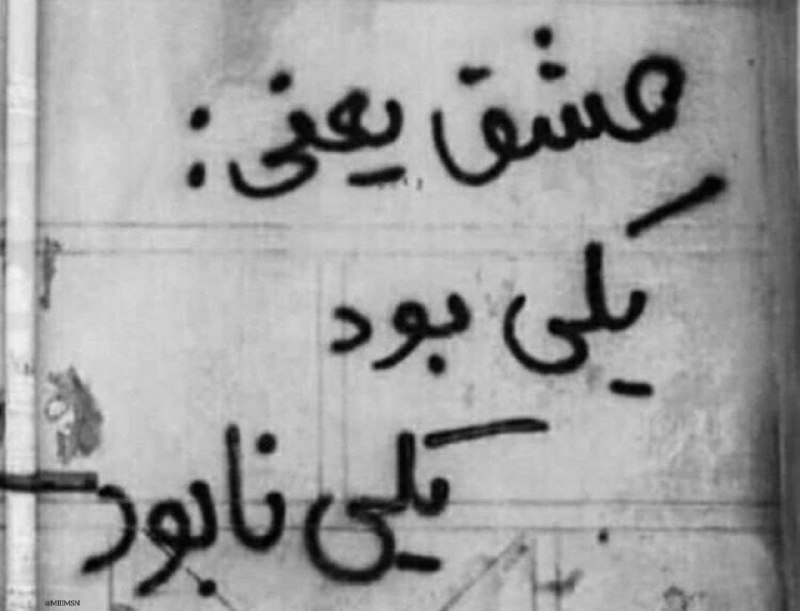 عشق یعنی:
یکی بود
یکی نابود
@MIIIMSN